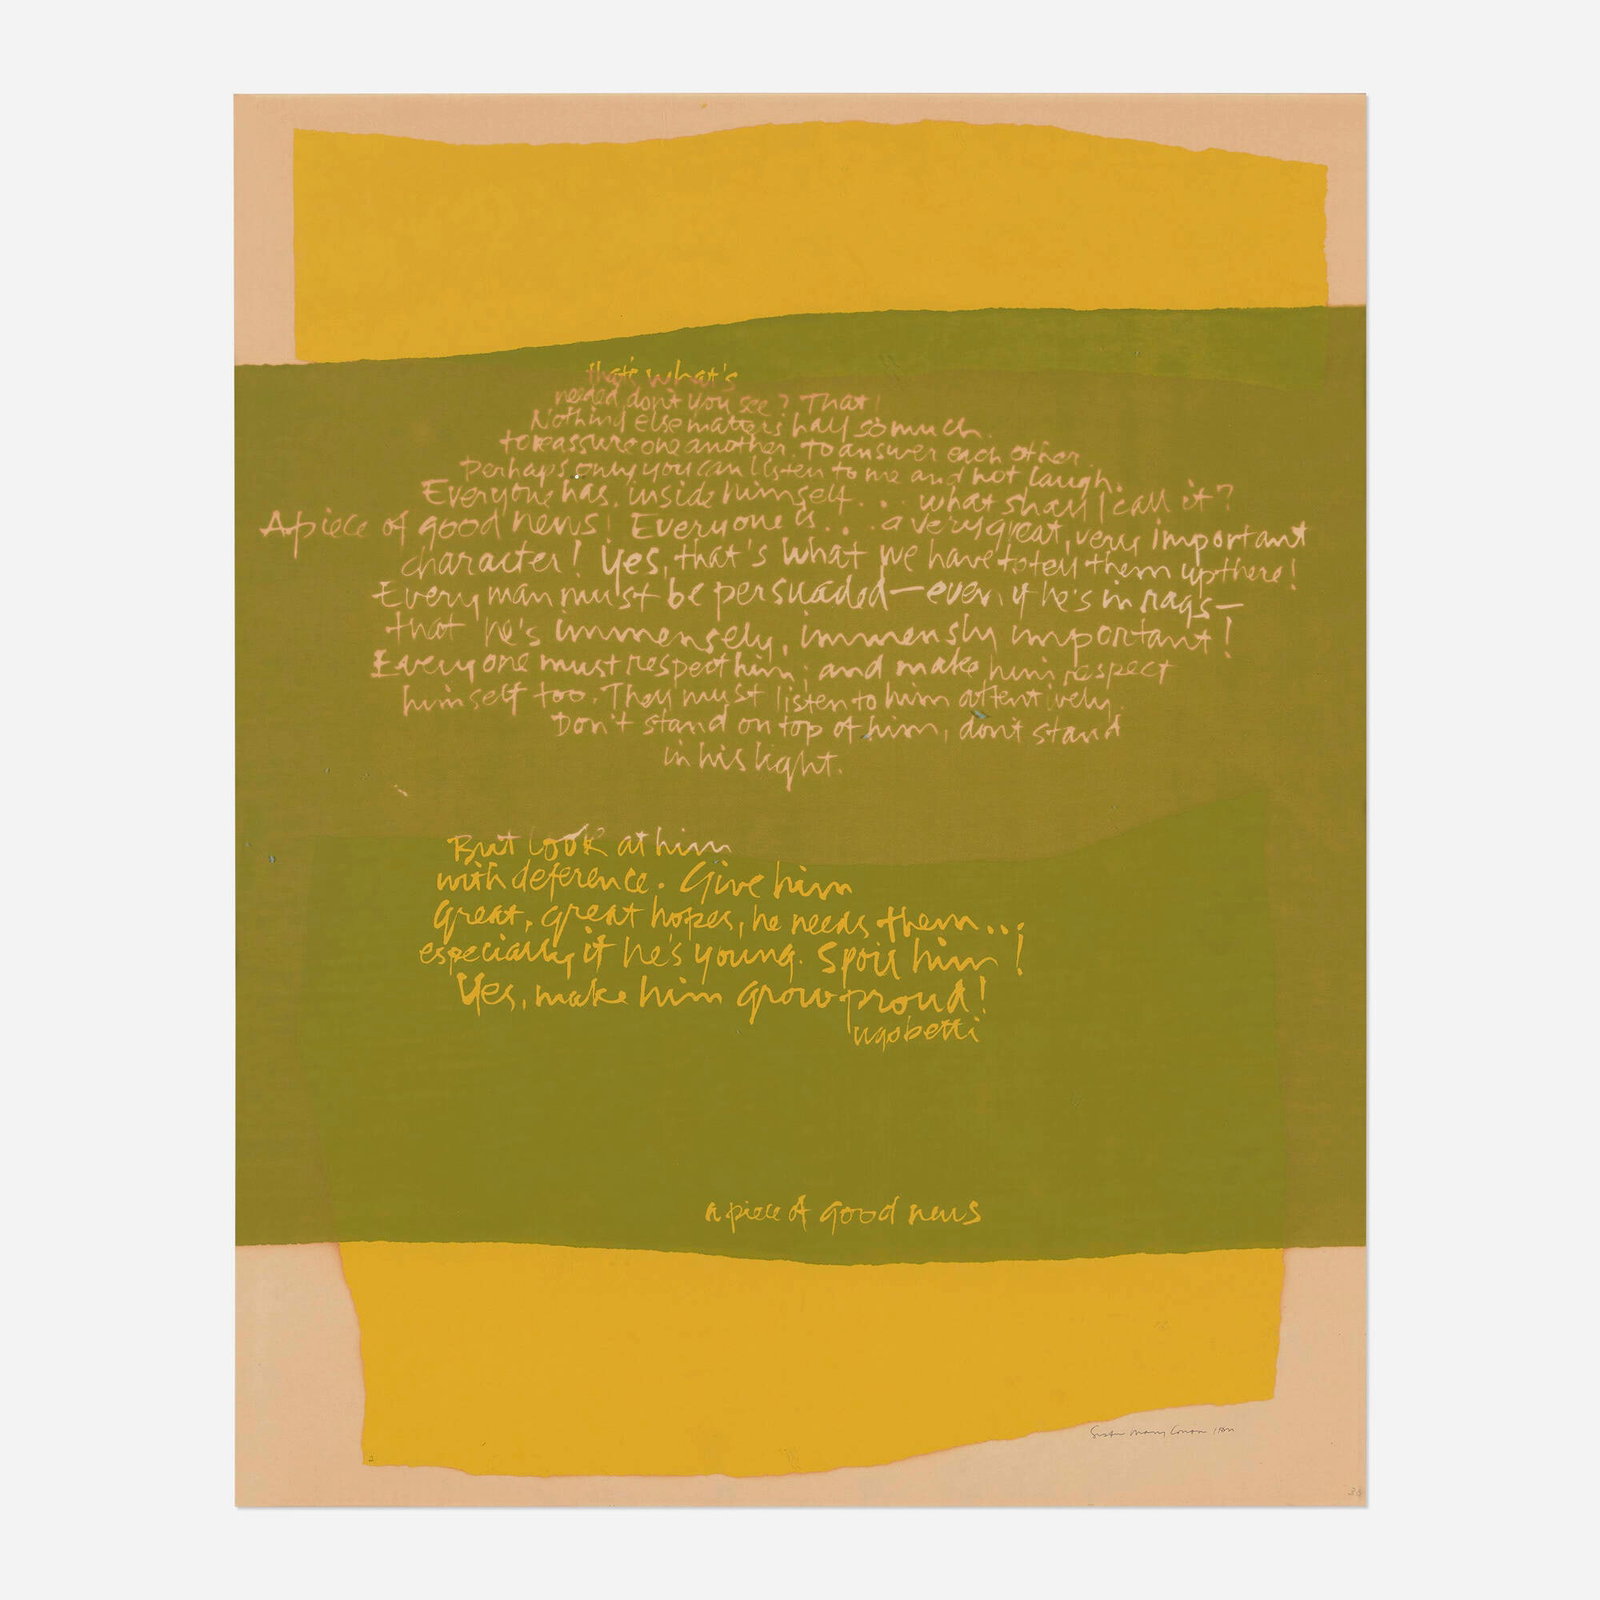 that's what's
needed don't you see? That!
Nothing Else matters half so much.
to reassure one another. To answer each other.
Perhaps only you can listen to me and not laugh.
Everyone has, inside himself... what shall I call it?
A piece of good news! Everyone is... a very great, very important
character! Yes, that's what we have to tell them up there!
Every man must be persuaded—even if he's in rags—
that he's immensely, immensly important!
Everyone must respect him; and make him respect
himself too. They must listen to him attentively.
Don't stand on top of him, don't stand
in his light.
But look at him
with deference. Give him
great, great hopes, he needs them...
especially if he's young. Spoil him!
Yes, make him grow proud!
ugo betti
a piece of good news
Sister Mary Corita IHM